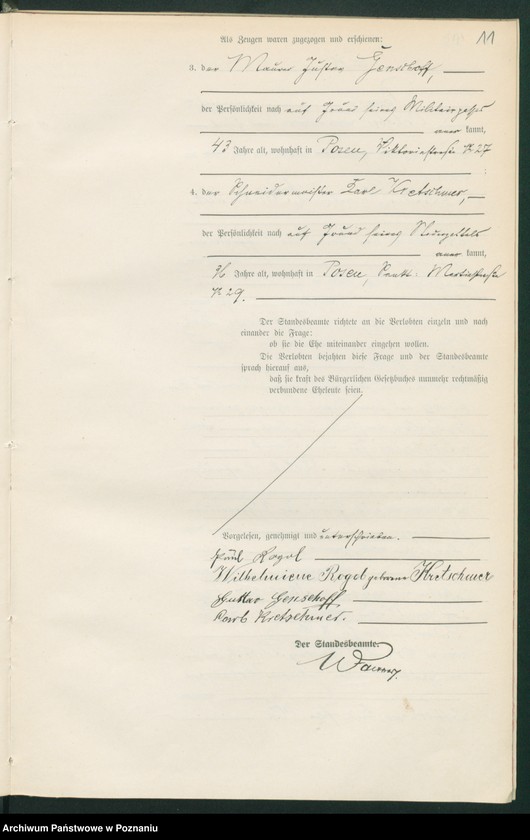 11
Als Zeugen waren zugezogen und erschienen:
3. der Maurer Gustav Genschoff,
der Persönlichkeit nach auf Grund seines Militairpasses
kannt,
43 Jahre alt, wohnhaft in Posen, Viktoriastraße № 27
4. der Schneidermeister Karl Kretschmer,
der Persönlichkeit nach auf Grund seines Steuerzettels
kannt,
36 Jahre alt, wohnhaft in Posen, Sankt Martinstraße
№ 29.
Der Standesbeamte richtete an die Verlobten einzeln und nach
einander die Frage:
ob sie die Ehe miteinander eingehen wollen.
Die Verlobten bejahten diese Frage und der Standesbeamte
sprach hierauf aus,
daß sie kraft des Bürgerlichen Gesetzbuches nunmehr rechtmäßig
verbundene Eheleute seien.
Vorgelesen, genehmigt und unterschrieben.
Paul Rogol
Wilhelmiene Rogol geborene Kretschmer
Gustav Genschoff
Karl Kretschmer.
Der Standesbeamte.
Archiwum Państwowe w Poznaniu